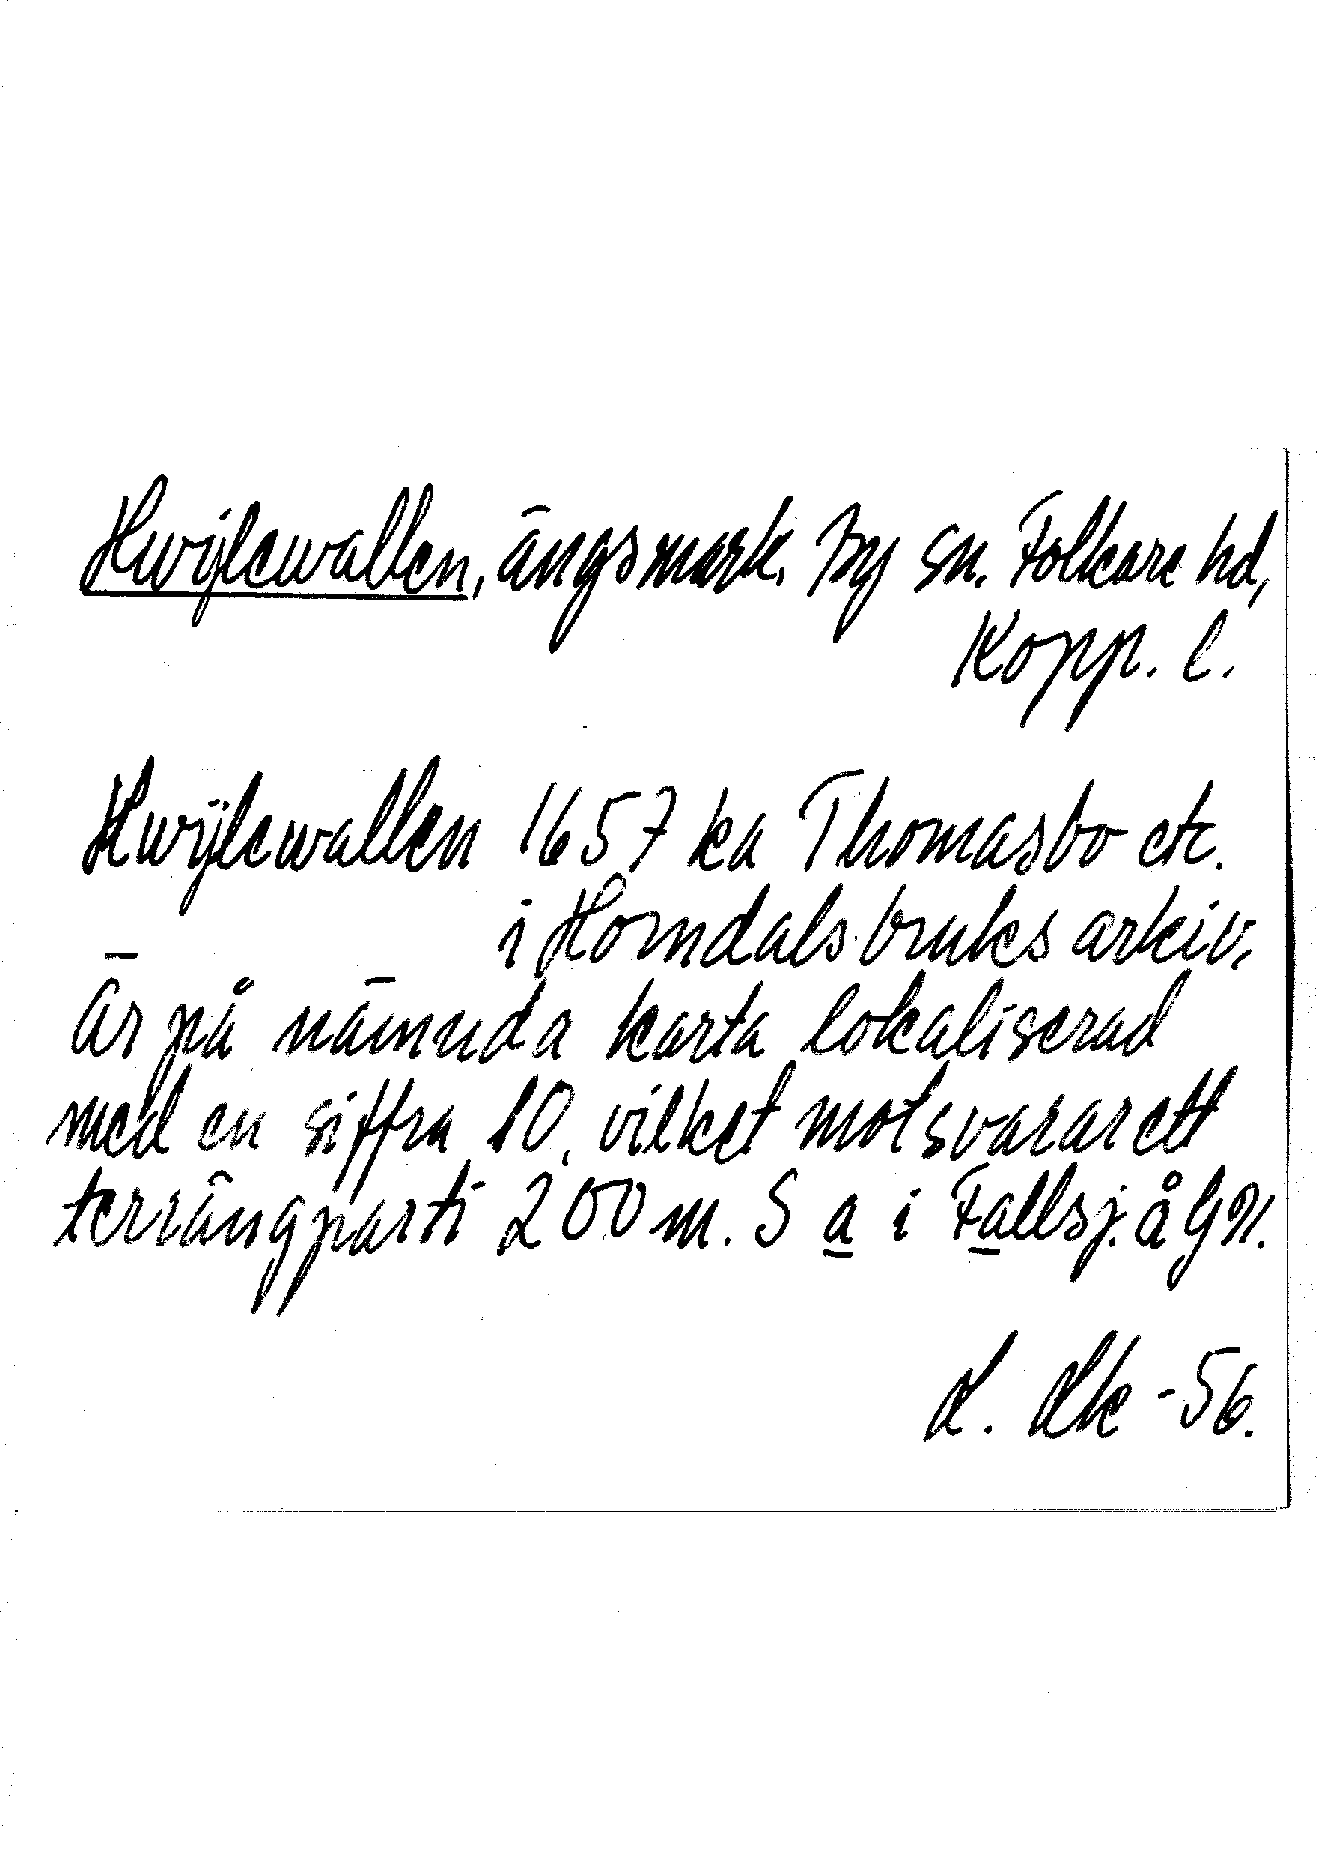 Hwÿlewallen, ängsmark. By sn. Folkare hd,
Kopp. l.
Hwÿlewallen 1657 ka Thomasbo etc.
i Horndals bruks arkiv,
är på nämnda karta lokaliserad
med en siffra 10, vilket motsvarar ett
terrängparti 200 m. S a i Fallsj. å GK.
-56.